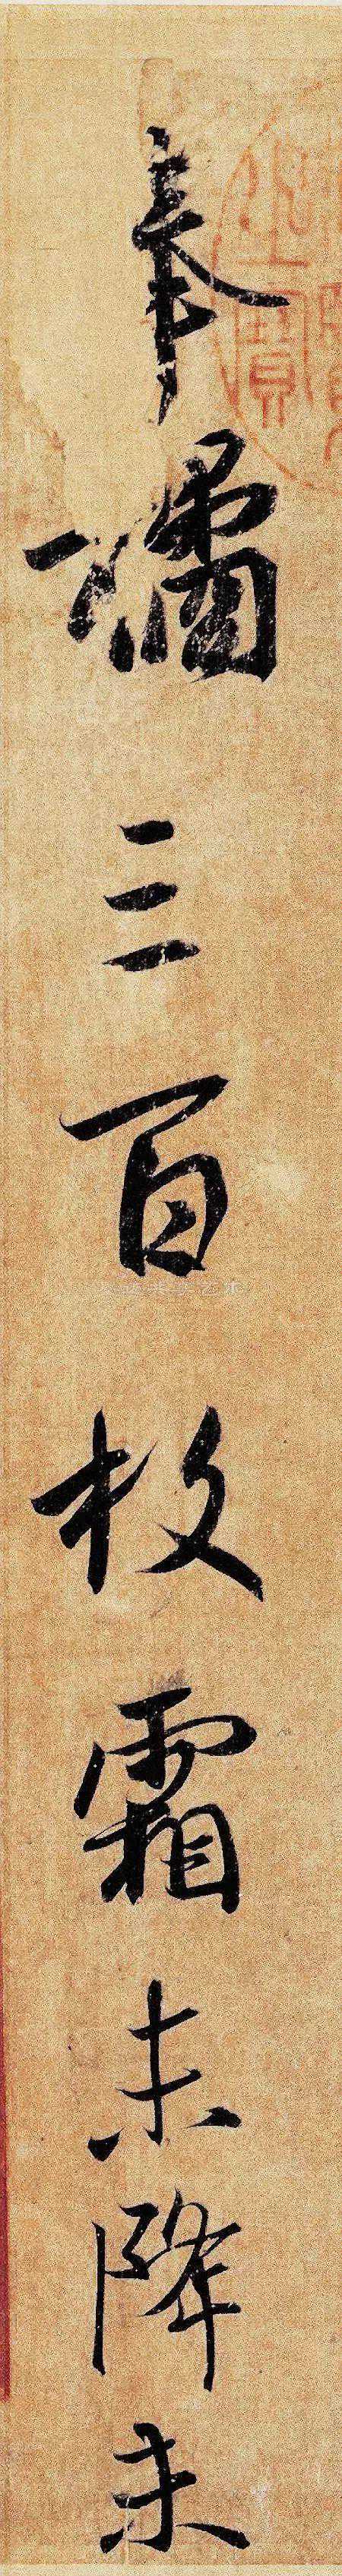 奉橘三百枚霜未降未